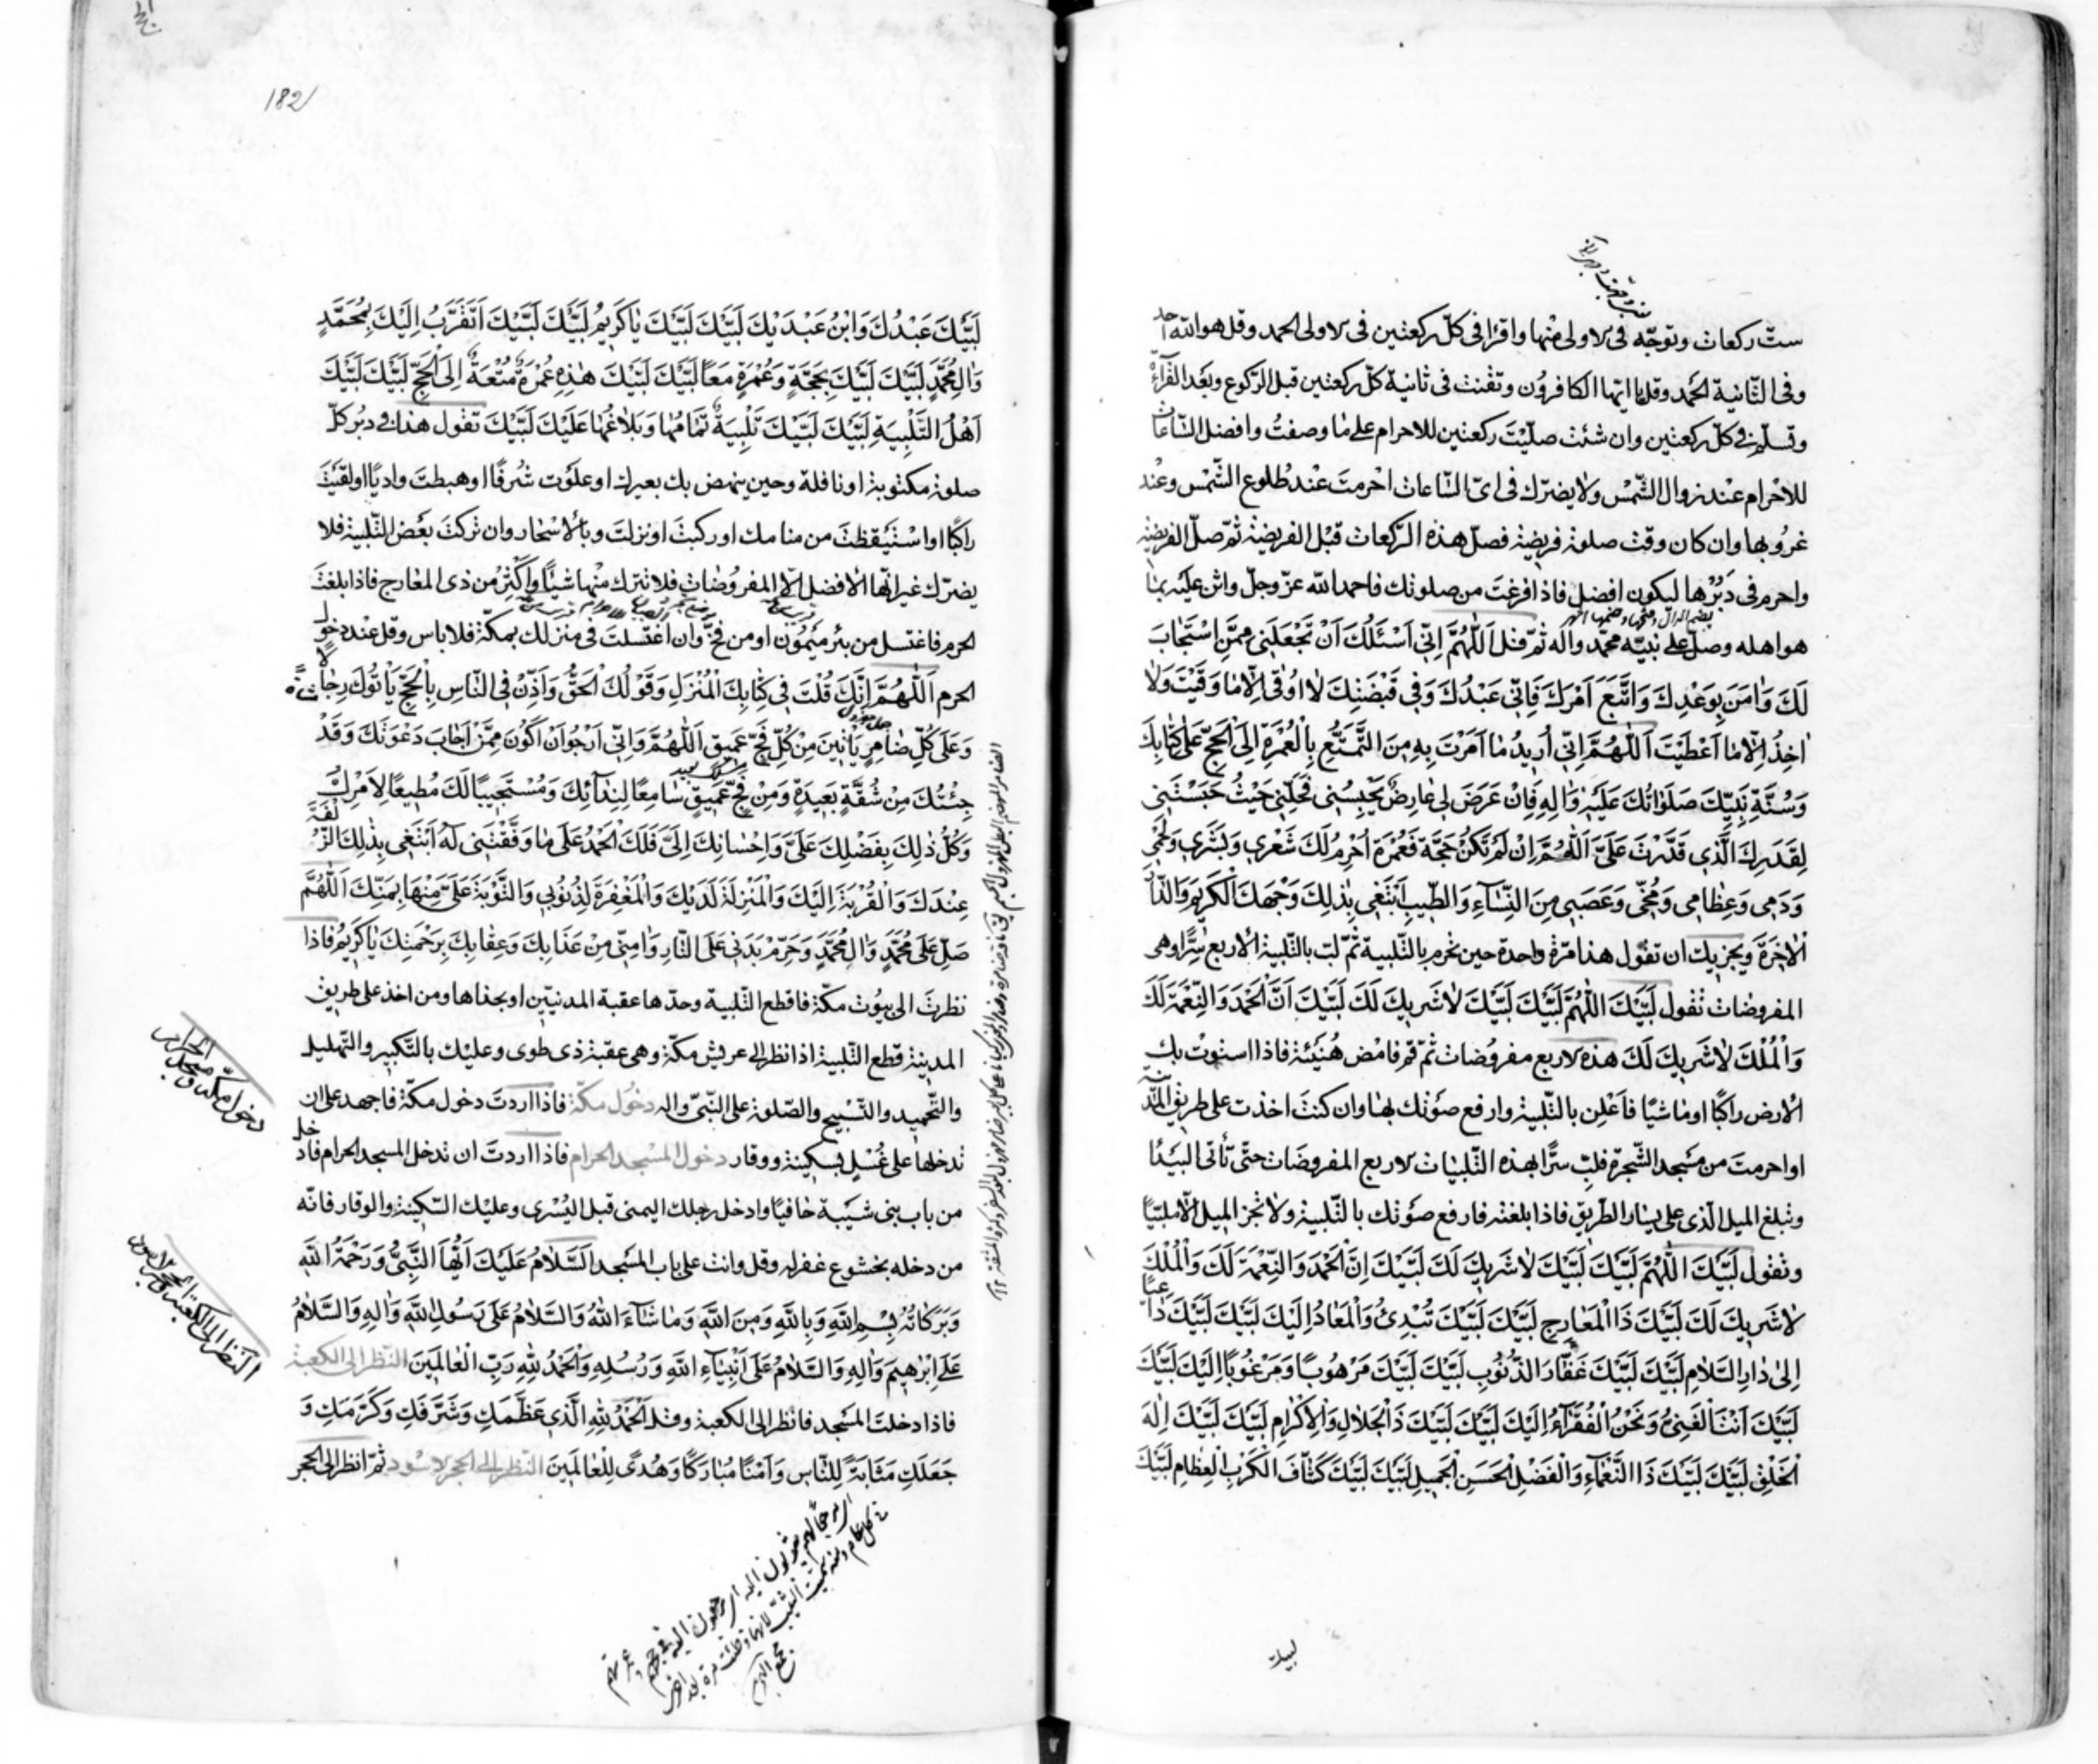 ستّ ركعات وتوجّه فى الاولى منها واقرا فى كلّ ركعتين فى الاولى الحمد وقل هو الله احد
وفى الثّانية الحمد وقل يا ايّها الكافرون وتقنت فى ثانية كلّ ركعتين قبل الرّكوع وبعد القرآءة
وتسلّم فى كلّ ركعتين وان شئت صلّيت ركعتين للاحرام على ما وصفتُ وافضل السّاعات
للاحرام عند زوال الشّمس ولا يضرّك فى اىّ السّاعات احرمت عند طلوع الشّمس وعند
غروبها وان كان وقت صلوة فريضة فصلّ هذه الرّكعات قبل الفريضة ثمّ صلّ الفريضة
واحرم فى دبرها ليكون افضل فاذا فرغت من صلوتك فاحمد الله عزّ وجلّ واثن عليه بما
هو اهله وصلّ على نبيّه محمّد واله ثمّ قل اَللّٰهُمَّ اِنّى اَسْئَلُكَ اَنْ تَجْعَلَنى مِمَّنِ اسْتَجٰابَ
لَكَ وَاٰمَنَ بِوَعْدِكَ وَاتَّبَعَ اَمْرَكَ فَاِنّى عَبْدُكَ وَفى قَبْضَتِكَ لٰا اُوقٰى اِلّٰا مٰا وَقَيْتَ وَلٰا
اٰخِذُ اِلّٰا مٰا اَعْطَيْتَ اَللّٰهُمَّ اِنّى اُريدُ مٰا اَمَرْتَ بِهِ مِنَ التَّمَتُّعِ بِالْعُمْرَةِ اِلَى الْحَجِّ عَلٰى كِتٰابِكَ
وَسُنَّةِ نَبِيِّكَ صَلَوٰاتُكَ عَلَيْهِ وَاٰلِهِ فَاِنْ عَرَضَ لى عٰارِضٌ يَحْبِسُنى فَحُلَّنى حَيْثُ حَبَسْتَنى
لِقَدَرِكَ الَّذى قَدَّرْتَ عَلَىَّ اَللّٰهُمَّ اِنْ لَمْ تَكُنْ حَجَّةً فَعُمْرَةً اُحْرِمُ لَكَ شَعْرى وَبَشَرى وَلَحْمى
وَدَمى وَعِظٰامى وَمُخّى وَعَصَبى مِنَ النِّسٰآءِ وَالطّيبِ اَبْتَغى بِذٰلِكَ وَجْهَكَ الْكَريمَ وَالدّٰارَ
الْاٰخِرَةَ ويجزيك ان تقول هذا مرّة واحدة حين تحرم بالتّلبية ثمّ لبّ بالتّلبية الاربع سرًّا وهى
المفروضات تقول لَبَّيْكَ اللّٰهُمَّ لَبَّيْكَ لَبَّيْكَ لٰا شَريكَ لَكَ لَبَّيْكَ اِنَّ الْحَمْدَ وَالنِّعْمَةَ لَكَ
وَالْمُلْكَ لٰا شَريكَ لَكَ هذه الاربع مفروضات ثمّ قم فامض هنيئة فاذا استوت بك
الارض راكبًا او ماشيًا فاعلن بالتّلبية وارفع صوتك بها وان كنت اخذت على طريق المدينة
او احرمت من مسجد الشّجرة فلبّ سرًّا بهذه التّلبيات الاربع المفروضات حتّى تأتى البيدا
وتبلغ الميل الّذى على يسار الطّريق فاذا بلغته فارفع صوتك بالتّلبية ولا تجز الميل الّا ملبّيًا
وتقول لَبَّيْكَ اللّٰهُمَّ لَبَّيْكَ لَبَّيْكَ لٰا شَريكَ لَكَ لَبَّيْكَ اِنَّ الْحَمْدَ وَالنِّعْمَةَ لَكَ وَالْمُلْكَ
لٰا شَريكَ لَكَ لَبَّيْكَ ذَا الْمَعٰارِجِ لَبَّيْكَ لَبَّيْكَ تُبْدِئُ وَالْمَعٰادُ اِلَيْكَ لَبَّيْكَ لَبَّيْكَ دٰاعِيًا
اِلٰى دٰارِ السَّلٰامِ لَبَّيْكَ لَبَّيْكَ غَفّٰارَ الذُّنُوبِ لَبَّيْكَ لَبَّيْكَ مَرْهُوبًا وَمَرْغُوبًا اِلَيْكَ لَبَّيْكَ
لَبَّيْكَ اَنْتَ الْغَنِىُّ وَنَحْنُ الْفُقَرٰآءُ اِلَيْكَ لَبَّيْكَ لَبَّيْكَ ذَا الْجَلٰالِ وَالْاِكْرٰامِ لَبَّيْكَ لَبَّيْكَ اِلٰهَ
الْخَلْقِ لَبَّيْكَ لَبَّيْكَ ذَا النَّعْمٰآءِ وَالْفَضْلِ الْحَسَنِ الْجَميلِ لَبَّيْكَ لَبَّيْكَ كَشّٰافَ الْكُرَبِ الْعِظٰامِ لَبَّيْكَ
لبيك
182
لَبَّيْكَ عَبْدُكَ وَابْنُ عَبْدَيْكَ لَبَّيْكَ لَبَّيْكَ يٰا كَريمُ لَبَّيْكَ لَبَّيْكَ اَتَقَرَّبُ اِلَيْكَ بِمُحَمَّدٍ
وَاٰلِ مُحَمَّدٍ لَبَّيْكَ لَبَّيْكَ بِحَجَّةٍ وَعُمْرَةٍ مَعًا لَبَّيْكَ لَبَّيْكَ هٰذِهِ عُمْرَةُ مُتْعَةٍ اِلَى الْحَجِّ لَبَّيْكَ لَبَّيْكَ
اَهْلَ التَّلْبِيَةِ لَبَّيْكَ لَبَّيْكَ تَلْبِيَةً تَمٰامُهٰا وَبَلٰاغُهٰا عَلَيْكَ لَبَّيْكَ تقول هذا فى دبر كلّ
صلوة مكتوبة او نافلة وحين ينهض بك بعيرك او علوت شرفًا او هبطت واديًا او لقيت
راكبًا او استيقظت من منامك او ركبت او نزلت وبالاسحار وان تركت بعض التّلبية فلا
يضرّك غير انّها الافضل الّا المفروضات فلا تترك منها شيئًا واكثر من ذى المعارج فاذا بلغت
الحرم فاغتسل من بئر ميمون او من فخّ وان اغتسلت فى منزلك بمكّة فلا باس وقل عند دخول
الحرم اَللّٰهُمَّ اِنَّكَ قُلْتَ فى كِتٰابِكَ الْمُنْزَلِ وَقَوْلُكَ الْحَقُّ وَاَذِّنْ فِى النّٰاسِ بِالْحَجِّ يَأْتُوكَ رِجٰالًا
وَعَلٰى كُلِّ ضٰامِرٍ يَأْتينَ مِنْ كُلِّ فَجٍّ عَميقٍ اَللّٰهُمَّ وَاِنّى اَرْجُو اَنْ اَكُونَ مِمَّنْ اَجٰابَ دَعْوَتَكَ وَقَدْ
جِئْتُكَ مِنْ شُقَّةٍ بَعيدَةٍ وَمِنْ فَجٍّ عَميقٍ سٰامِعًا لِنِدٰآئِكَ وَمُسْتَجيبًا لَكَ مُطيعًا لِاَمْرِكَ
وَكُلُّ ذٰلِكَ بِفَضْلِكَ عَلَىَّ وَاِحْسٰانِكَ اِلَىَّ فَلَكَ الْحَمْدُ عَلٰى مٰا وَفَّقْتَنى لَهُ اَبْتَغى بِذٰلِكَ الزُّلْفَةَ
عِنْدَكَ وَالْقُرْبَةَ اِلَيْكَ وَالْمَنْزِلَةَ لَدَيْكَ وَالْمَغْفِرَةَ لِذُنُوبى وَالتَّوْبَةَ عَلَىَّ مِنْهٰا بِمَنِّكَ اَللّٰهُمَّ
صَلِّ عَلٰى مُحَمَّدٍ وَاٰلِ مُحَمَّدٍ وَحَرِّمْ بَدَنى عَلَى النّٰارِ وَاٰمِنّى مِنْ عَذٰابِكَ وَعِقٰابِكَ بِرَحْمَتِكَ يٰا كَريمُ فاذا
نظرت الى بيوت مكّة فاقطع التّلبية وحدّها عقبة المدنيّين او بحذاها ومن اخذ على طريق
المدينة قطع التّلبية اذا نظر الى عريش مكّة وهى عقبة ذى طوى وعليك بالتّكبير والتّهليل
والتّحميد والتّسبيح والصّلوة على النّبىّ واله دخول مكّة فاذا اردت دخول مكّة فاجهد على ان
تدخلها على غسل بسكينة ووقار دخول المسجد الحرام فاذا اردت ان تدخل المسجد الحرام فادخل
من باب بنى شيبة حافيًا وادخل رجلك اليمنى قبل اليسرى وعليك السّكينة والوقار فانّه
من دخله بخشوع غفر له وقل وانت على باب المسجد اَلسَّلٰامُ عَلَيْكَ اَيُّهَا النَّبِىُّ وَرَحْمَةُ اللهِ
وَبَرَكٰاتُهُ بِسْمِ اللهِ وَبِاللهِ وَمِنَ اللهِ وَمٰا شٰآءَ اللهُ وَالسَّلٰامُ عَلٰى رَسُولِ اللهِ وَاٰلِهِ وَالسَّلٰامُ
عَلٰى اِبْرٰهيمَ وَاٰلِهِ وَالسَّلٰامُ عَلٰى اَنْبِيٰآءِ اللهِ وَرُسُلِهِ وَالْحَمْدُ لِلّٰهِ رَبِّ الْعٰالَمينَ النّظر الى الكعبة
فاذا دخلت المسجد فانظر الى الكعبة وقل اَلْحَمْدُ لِلّٰهِ الَّذى عَظَّمَكِ وَشَرَّفَكِ وَكَرَّمَكِ وَ
جَعَلَكِ مَثٰابَةً لِلنّٰاسِ وَاَمْنًا مُبٰارَكًا وَهُدًى لِلْعٰالَمينَ النّظر الى الحجر الاسود ثمّ انظر الى الحجر
دخول مكة و مسجد الحرام
النظر الى الكعبة و الحجر الاسود
مجمع البحرين